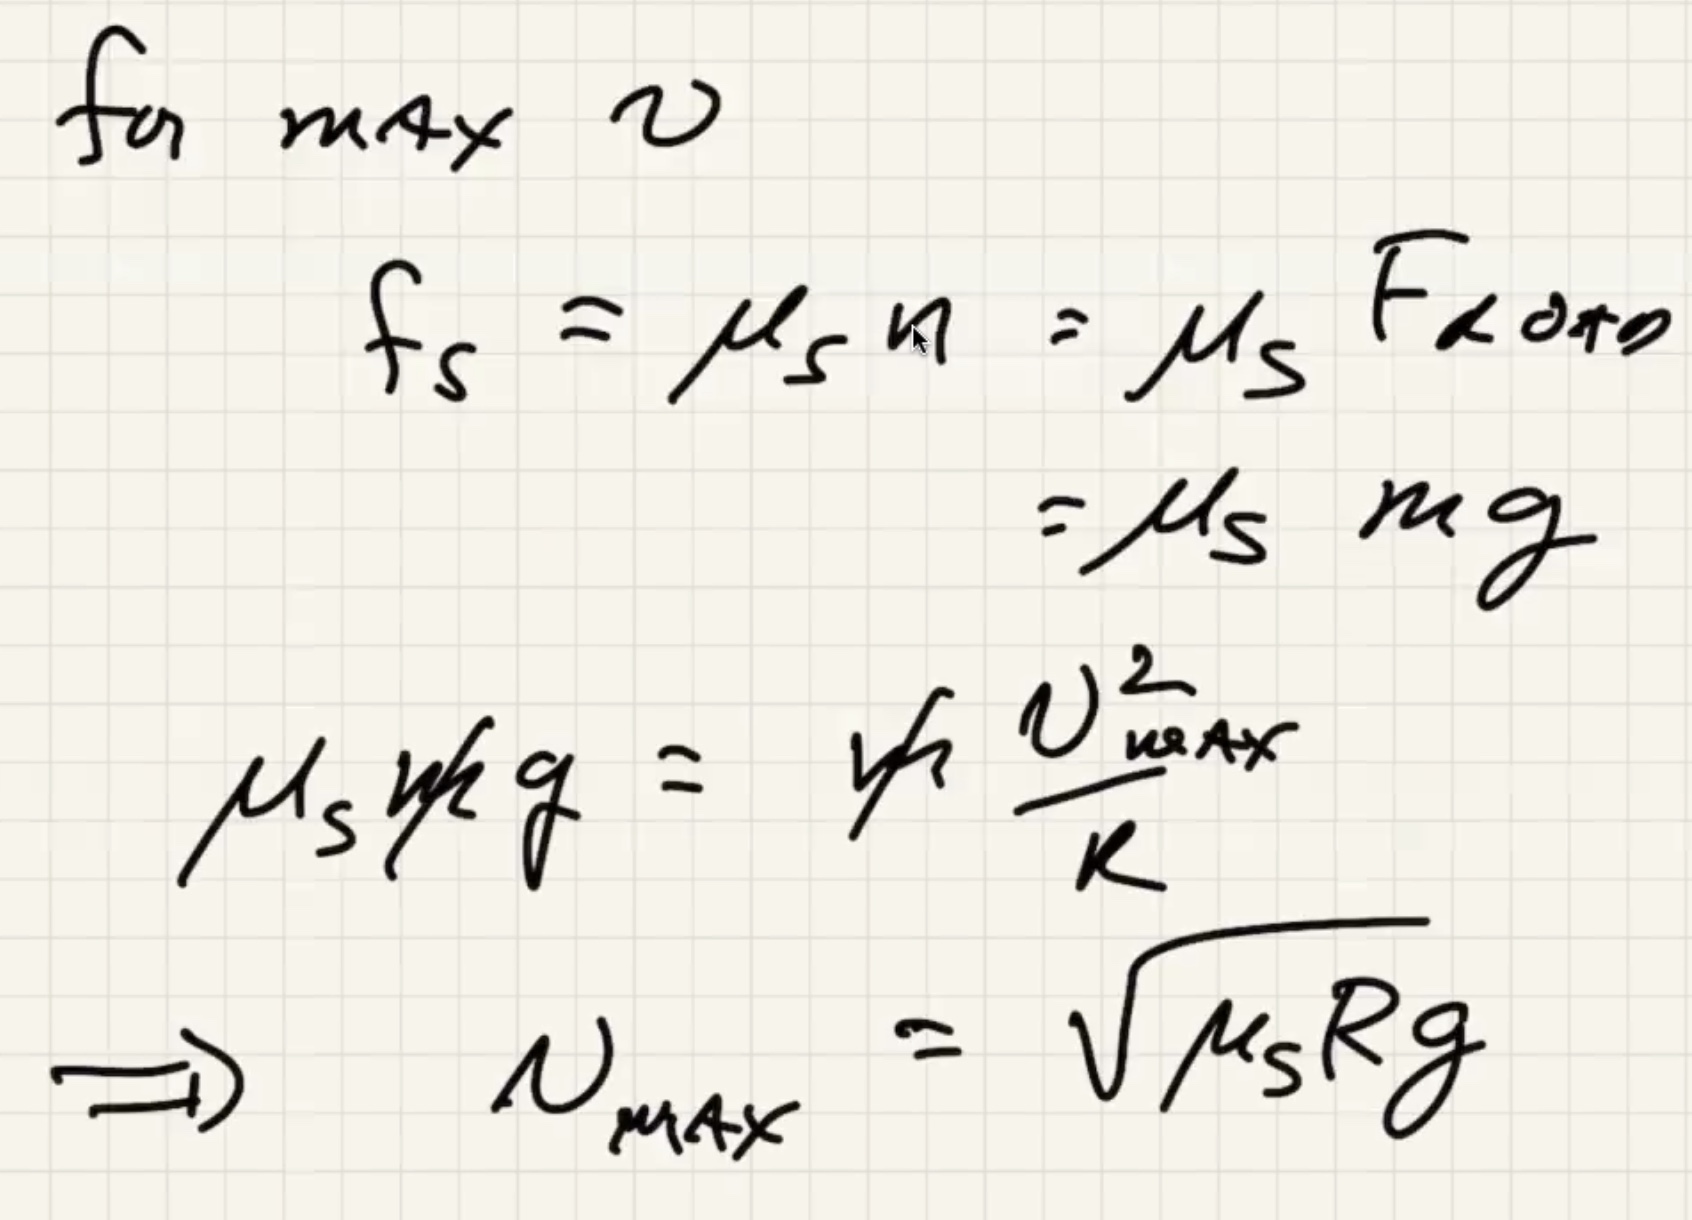 for max v
f_s = μ_s n = μ_s F
= μ_s m g
μ_s m g = m v²_max / R
⇒ v_max = √(μ_s R g)